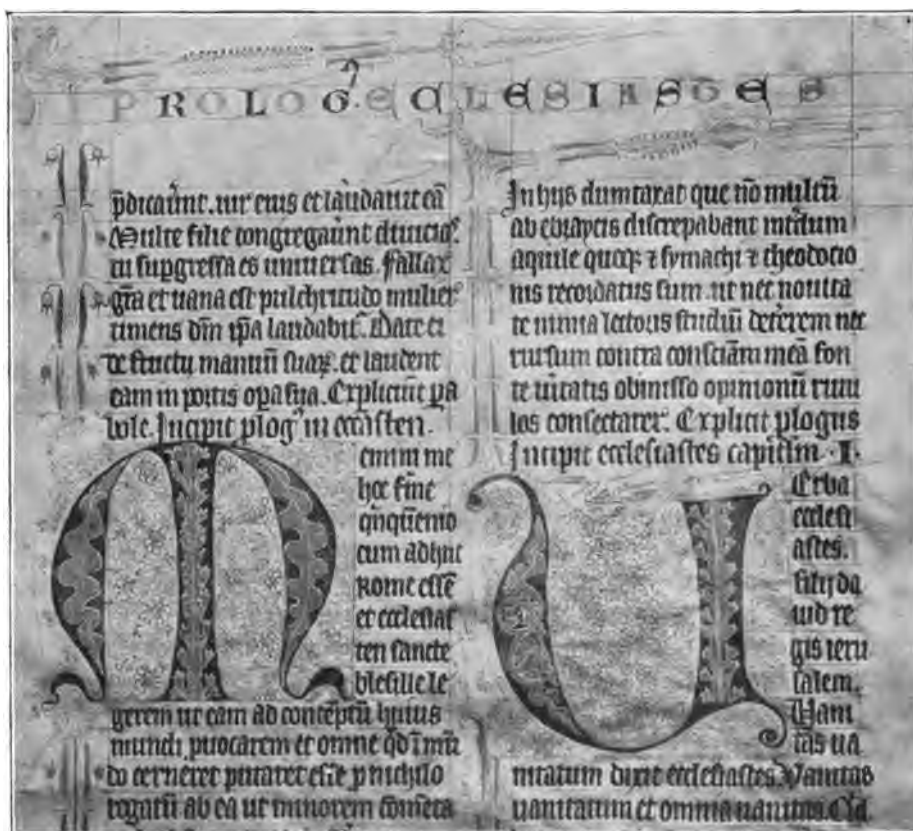 PROLOG9 ECCLESIASTES
p̄dicauer̄t. uir eius et laudauit eā
Multe filie congregauer̄t diuicias.
tu supgressa es uniuersas. fallax
gr̄a et uana est pulchritudo mulier
timens dm̄ ip̄a laudabit᷑. Date ei
de fructu manuū suaꝝ. et laudent
eam in portis opa sua. Expliciūt pa
bole. Incipit plog9 in eccāsten.
Memini me
hoc ferme
qn̄quenio
cum adhuc
rome essē
et ecclesias
ten sancte
blesille le
gerem ut eam ad conceptū huius
mundi, puocarem et omne qd̄ ī mū
do cerneret putaret esse p nichilo
rogatū ab ea ut in morem cōmēta
In hijs dumtaxat que nō multū
ab ebraycis discrepabant int̄dum
aquile quoq; ⁊ symachi ⁊ theodocio
nis recordatus sum. ut nec nouita
te nimia lectoris studiū deterrem nec
rursum contra consciām meā fon
te ūitatis obmisso opinionū riuu
los consectarer. Explicit plogus
Incipit ecclesiastes capitlm · I ·
Uerba
ecclesi
astes.
filij da
uid re
gis ieru
salem.
Vani
tas ua
nitatum dixit ecclesiastes. Vanitas
uanitatum et omnia uanitas. Qd